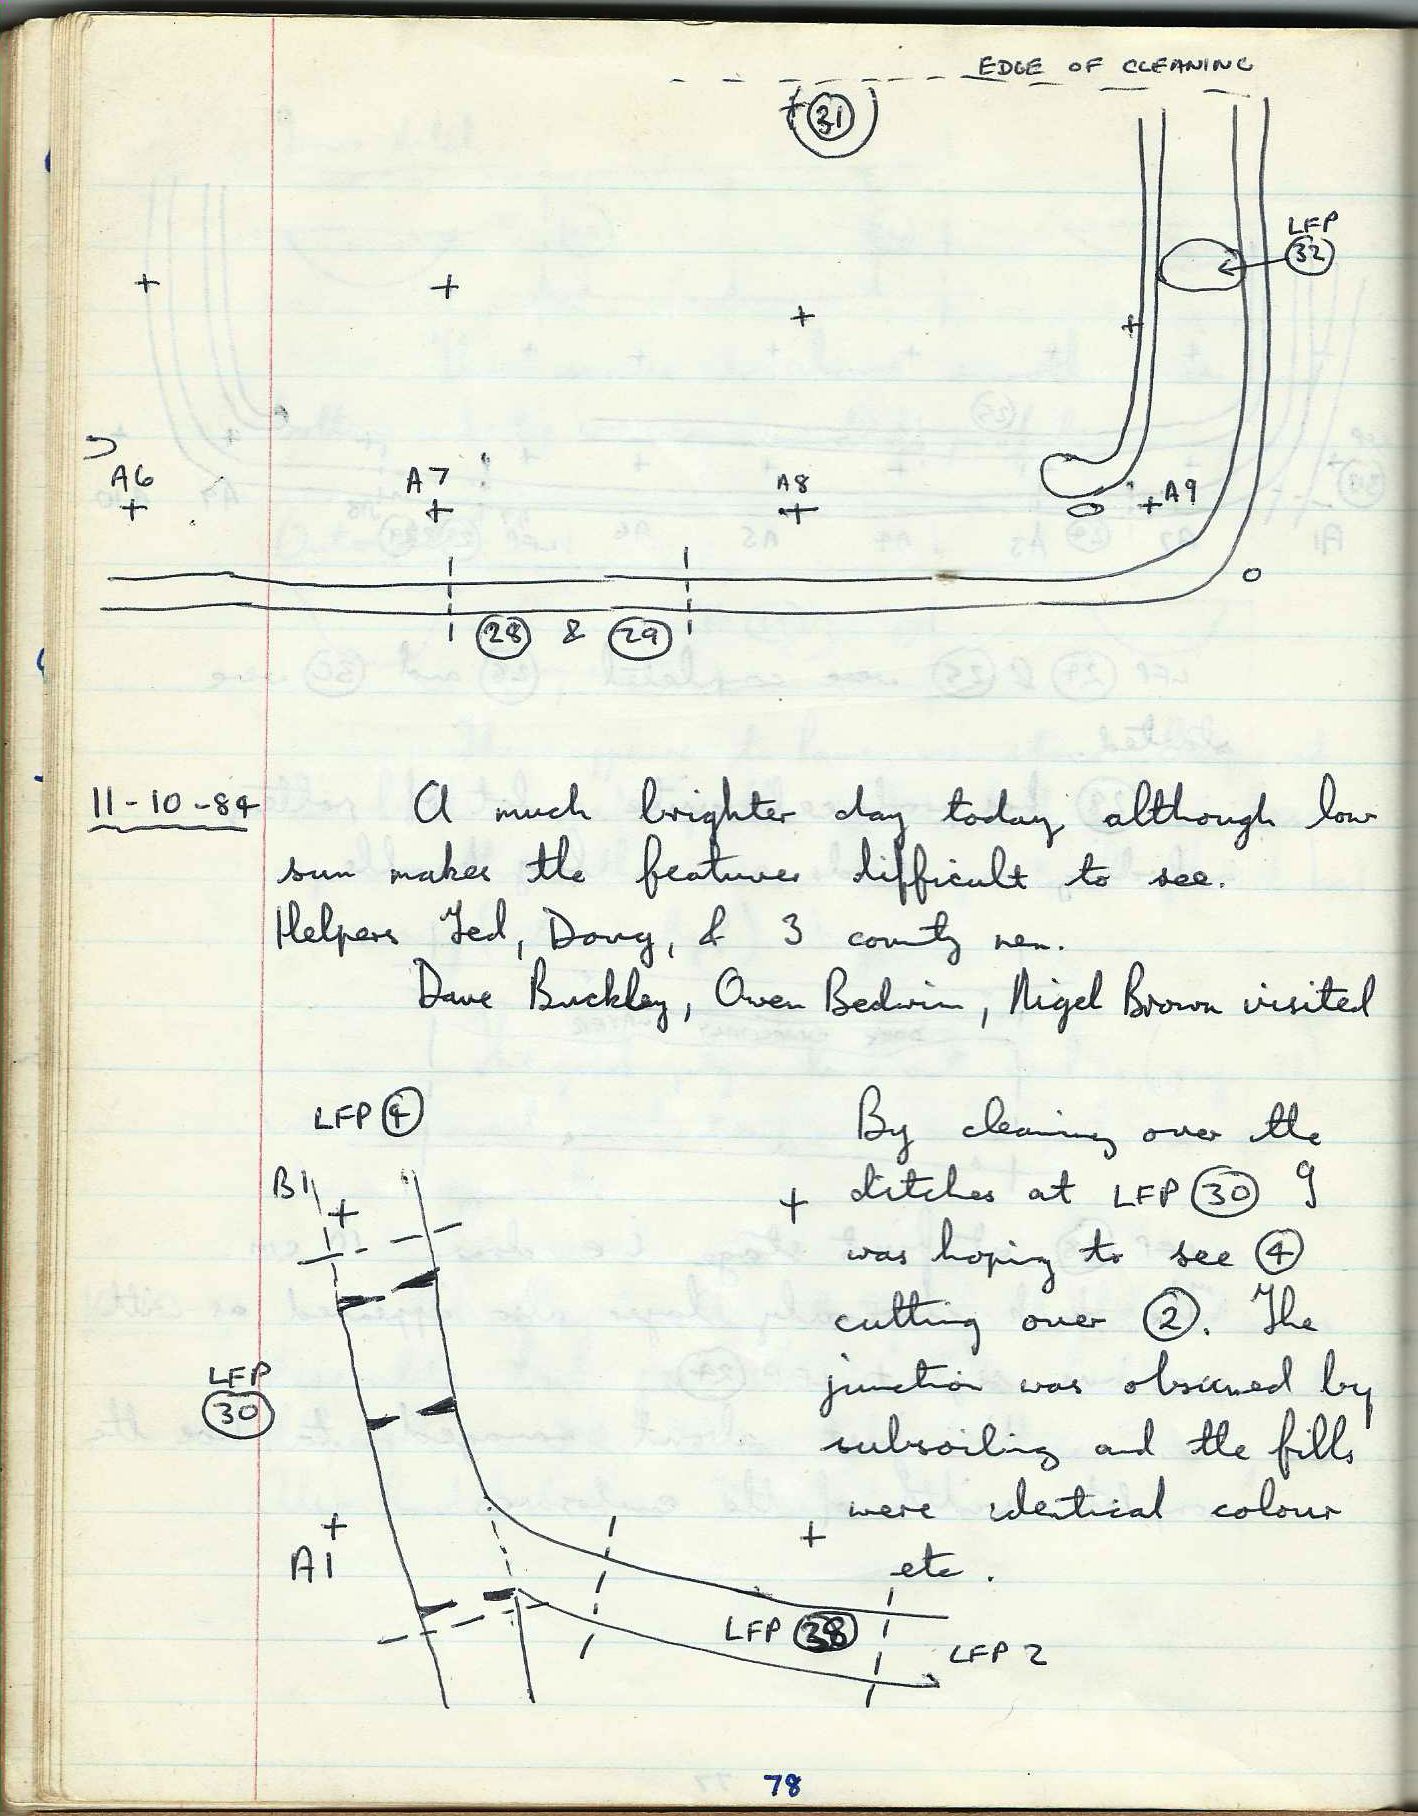 EDGE OF CLEANING
31
LFP
32
A6
A7
A8
A9
28 & 29
11-10-84 A much brighter day today although low
sun makes the features difficult to see.
Helpers Ted, Doug, & 3 county men.
Dave Buckley, Owen Bedwin, Nigel Brown visited
LFP 4
B1
LFP
30
A1
By cleaning over the
ditches at LFP 30 I
was hoping to see 4
cutting over 2. The
junction was obscured by
subsoiling and the fills
were identical colour
etc.
LFP 38
LFP 2
78